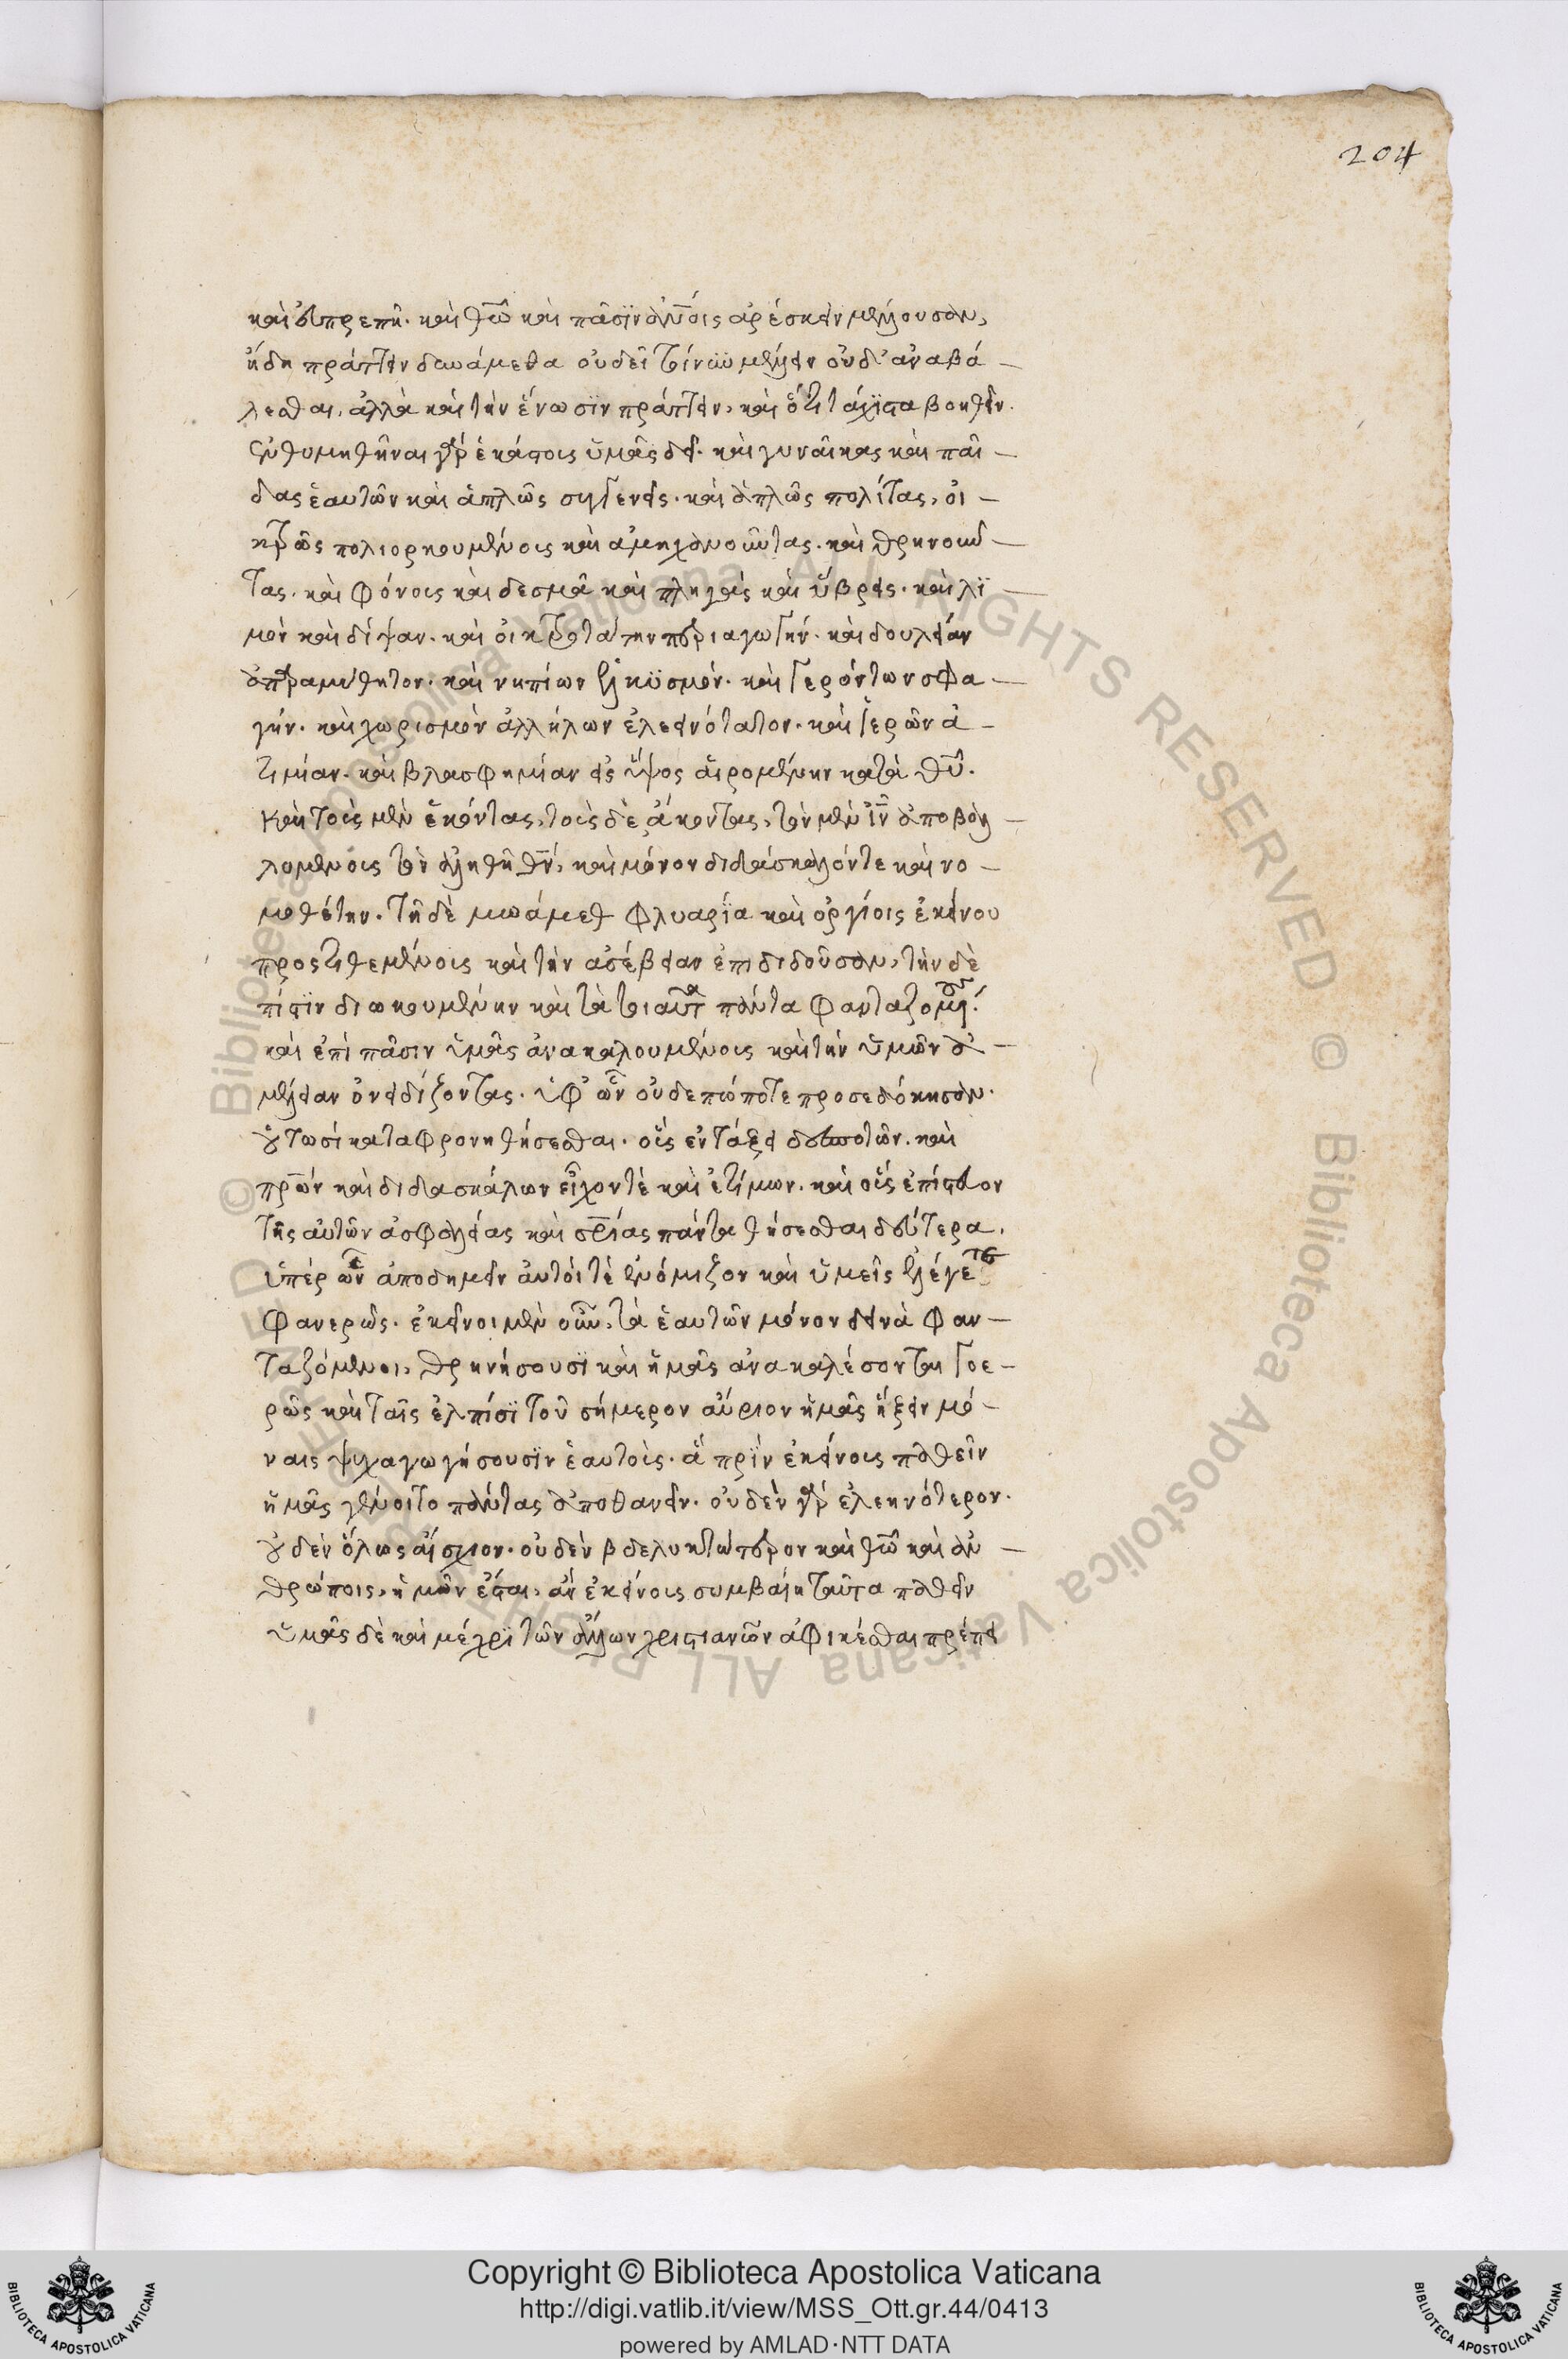 204
καὶ εὐπρεπῆ. καὶ θω̅ καὶ πᾶσιν αν̅οις ἀρέσκειν μέλλουσαν,
ἤδη πράττειν δυνάμεθα οὐδεῖ τοίνυν μέλλειν οὐδ' ἀναβά-
λεσθαι. ἀλλὰ καὶ τὴν ἕνωσιν πράττειν, καὶ ὅτι τάχιστα βοηθεῖν.
ἐνθυμηθῆναι γὰρ ἑκάστοις ὑμᾶς δεῖ. καὶ γυναῖκας καὶ παῖ-
δας ἑαυτῶν καὶ ἁπλῶς συγγενεῖς. καὶ ἁπλῶς πολίτας, οἰ-
κτρῶς πολιορκουμένους καὶ ἀμηχανοῦντας. καὶ θρηνοῦν-
τας. καὶ φόνους καὶ δεσμὰ καὶ πληγὰς καὶ ὕβρεις. καὶ λι-
μὸν καὶ δίψαν. καὶ οἰκτροτάτην περιαγωγήν. καὶ δουλείαν
ἀπαραμύθητον. καὶ νηπίων ἑλκυσμόν. καὶ γερόντων σφα-
γήν. καὶ χωρισμὸν ἀλλήλων ἐλεεινότατον. καὶ ἱερῶν ἀ-
τιμίαν. καὶ βλασφημίαν εἰς ὕψος αἰρομένην κατὰ θυ̅.
καὶ τοὺς μὲν ἑκόντας, τοὺς δὲ ἄκοντας, τὸν μὲν ιν̅ ἀποβαλ-
λομένους τὸν ἀληθῆ θν̅, καὶ μόνον διδάσκαλόν τε καὶ νο-
μοθέτην. τῇ δὲ μωάμεθ φλυαρία καὶ ὀργίοις ἐκείνου
προστιθεμένους καὶ τὴν ἀσέβειαν ἐπιδιδοῦσαν, τὴν δὲ
πίστιν διωκουμένην καὶ τὰ τοιαῦτα πάντα φανταζομένους
καὶ ἐπὶ πᾶσιν ὑμᾶς ἀνακαλουμένους καὶ τὴν ὑμῶν ἀ-
μέλειαν ὀνειδίζοντας. ὑφ' ὧν οὐδεπώποτε προσεδόκησαν.
οὑτωσὶ καταφρονηθήσεσθαι. οὓς ἐν τάξει δεσποτῶν. καὶ
πρων̅ καὶ διδασκάλων εἶχόν τε καὶ ἐτίμων. καὶ οὓς ἐπίστευον
τῆς αὐτῶν ἀσφαλείας καὶ σρι̅ας πάντα θήσεσθαι δεύτερα.
ὑπὲρ ὧν ἀποδημεῖν αὐτοί τε ἐνόμιζον καὶ ὑμεῖς ἐλέγετε
φανερῶς. ἐκεῖνοι μὲν οὖν, τὰ ἑαυτῶν μόνον δεινὰ φαν-
ταζόμενοι, θρηνήσουσι καὶ ἡμᾶς ἀνακαλέσονται γοε-
ρῶς καὶ ταῖς ἐλπίσι τοῦ σήμερον αὔριον ἡμᾶς ἥξειν μό-
ναις ψυχαγωγήσουσιν ἑαυτούς. ἃ πρὶν ἐκείνους παθεῖν
ἡμᾶς γένοιτο πάντας ἀποθανεῖν. οὐδὲν γὰρ ἐλεηνότερον.
οὐδὲν ὅλως αἴσχιον. οὐδὲν βδελυκτώτερον καὶ θω̅ καὶ ἀν-
θρώποις, ἡμῶν ἔσται, ἂν ἐκείνους συμβαίη ταῦτα παθεῖν
ὑμᾶς δὲ καὶ μέχρι τῶν ἄλλων χριστιανῶν ἀφικέσθαι πρέπει
Copyright © Biblioteca Apostolica Vaticana
http://digi.vatlib.it/view/MSS_Ott.gr.44/0413
powered by AMLAD·NTT DATA